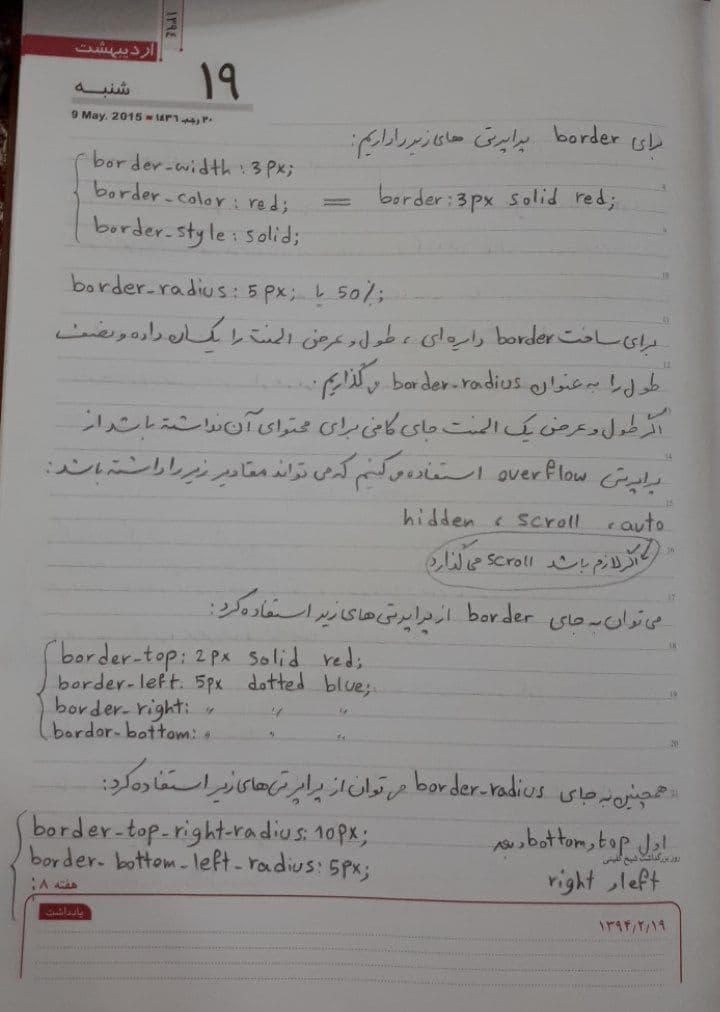 ۱۳۹٤
اردیبهشت
۱۹
شنبه
9 May. 2015 ▪ ۲۰ رجب ۱٤۳٦
برای border پراپرتی های زیر را داریم:
border-width: 3px;
border-color: red; = border: 3px solid red;
border-style: solid;
border-radius: 5px; یا 50%;
برای ساخت border دایره ای ، طول و عرض المنت را یکسان داده و نصف
طول را به عنوان border-radius می گذاریم.
اگر طول و عرض یک المنت جای کافی برای محتوای آن نداشته باشد از
پراپرتی overflow استفاده می کنیم که می تواند مقادیر زیر را داشته باشد:
hidden ، scroll ، auto
اگر لازم باشد scroll می گذارد
می توان به جای border از پراپرتی های زیر استفاده کرد:
border-top: 2px solid red;
border-left. 5px dotted blue;
border-right: 〃 〃 〃
bordor-bottom: 〃 〃 〃
همچنین به جای border-radius می توان از پراپرتی های زیر استفاده کرد:
border-top-right-radius: 10px; اول top و bottom و بعد
border-bottom-left-radius: 5px; right و left
روز بزرگداشت شیخ کلینی
هفته ۸
یادداشت
۱۳۹۴/۲/۱۹